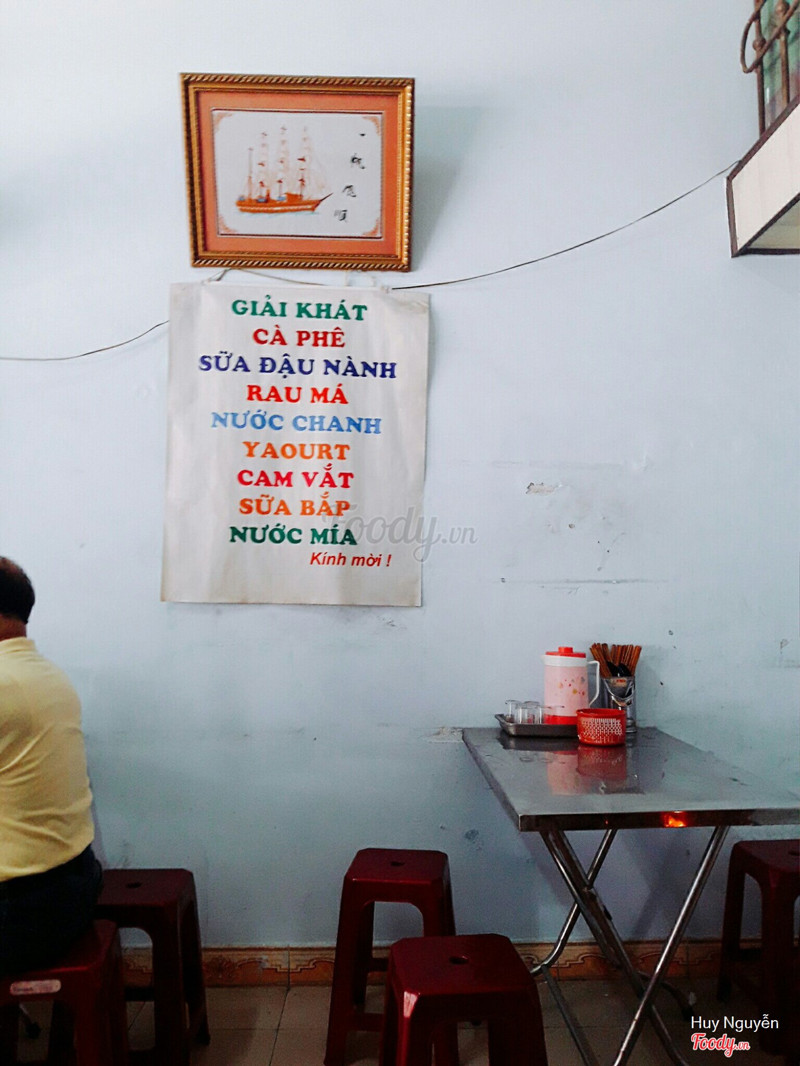 一
帆
風
順
GIẢI KHÁT
CÀ PHÊ
SỮA ĐẬU NÀNH
RAU MÁ
NƯỚC CHANH
YAOURT
CAM VẮT
SỮA BẮP
NƯỚC MÍA
Kính mời !
Foody.vn
Huy Nguyễn
Foody.vn